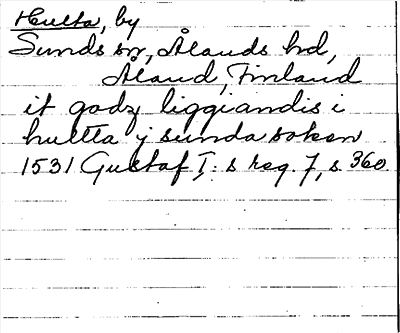 Hulta, by
Sunds sn, Ålands hd,
Åland, Finland
it godz liggiandis i
hultta j sunda soken
1531 Gustaf I:s reg. 7, s 360